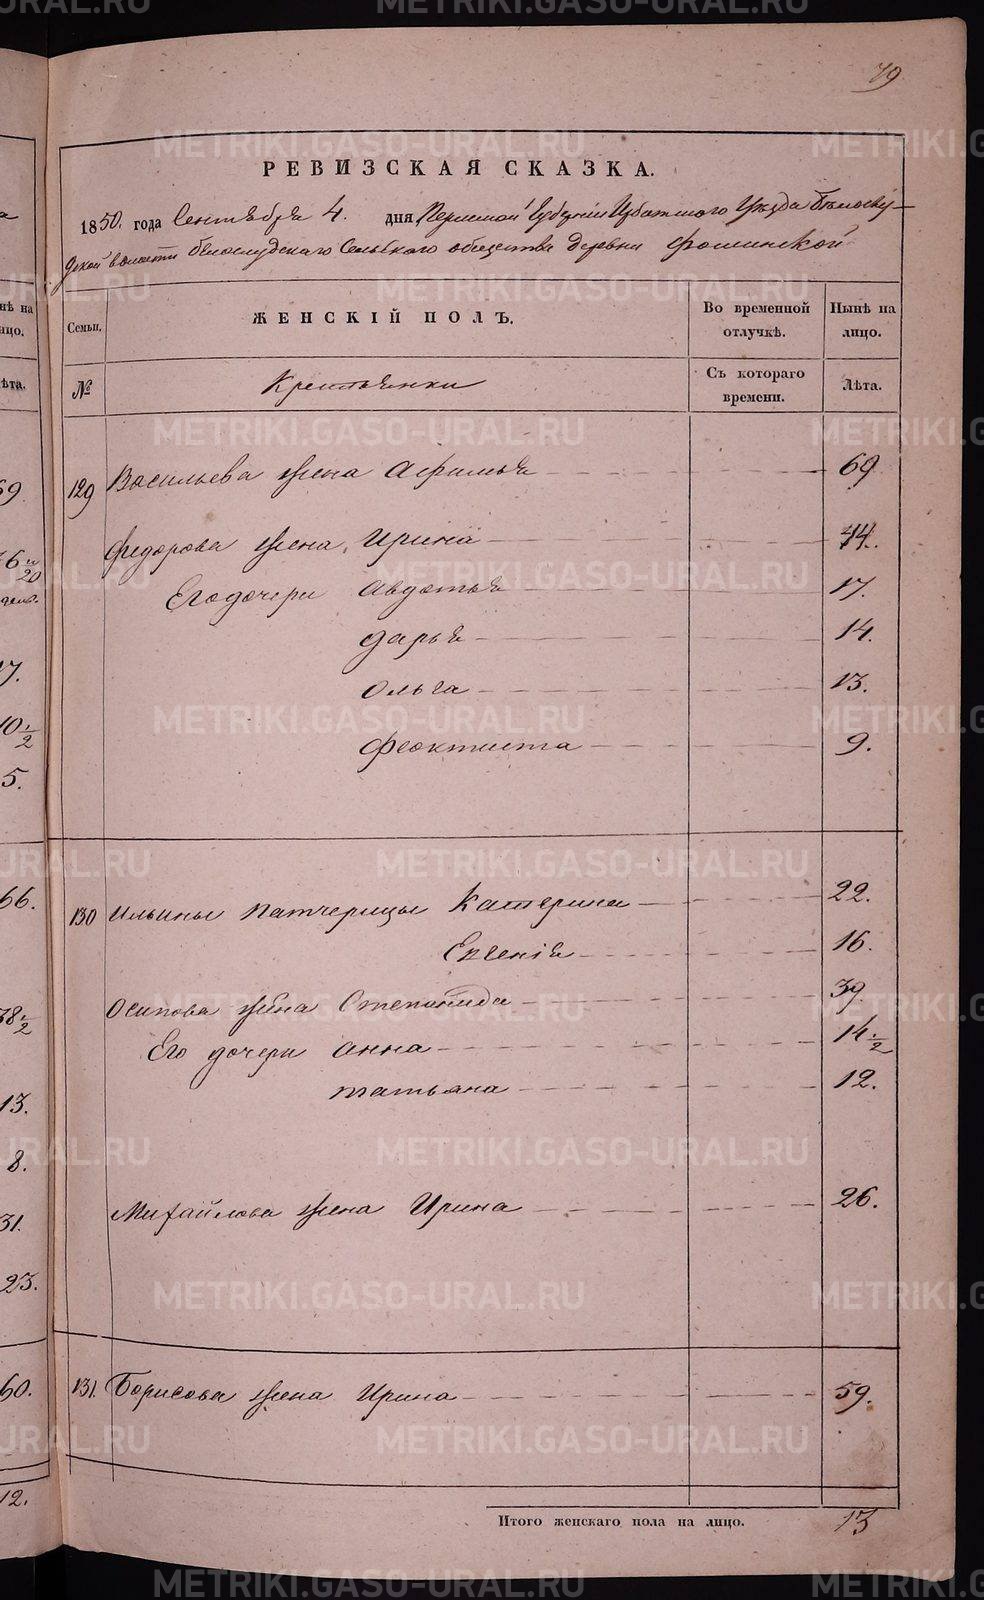 79
РЕВИЗСКАЯ СКАЗКА.
1850. года Сентября 4. дня, Пермской Губерніи Ирбитского Уѣзда Бѣлослу-
дской волости Бѣлослудскаго Сельскаго общества деревни Фоминской
Семьи. ЖЕНСКІЙ ПОЛЪ. Во временной отлучкѣ. Нынѣ на лицо.
№ Крестьянки Съ котораго времени. Лѣта.
129 Васильева жена Афимья 69
Федорова жена Ирина 44.
Его дочери Авдотья 17.
Дарья 14.
Ольга 13.
Феоктиста 9.
130 Ильины патчерицы Катерина 22.
Евгенія 16.
Осипова жена Степанида 39
Его дочери Анна 14 1/2
Татьяна 12.
Михайлова жена Ирина 26.
131. Борисова жена Ирина 59.
Итого женскаго пола на лицо. 13
METRIKI.GASO-URAL.RU